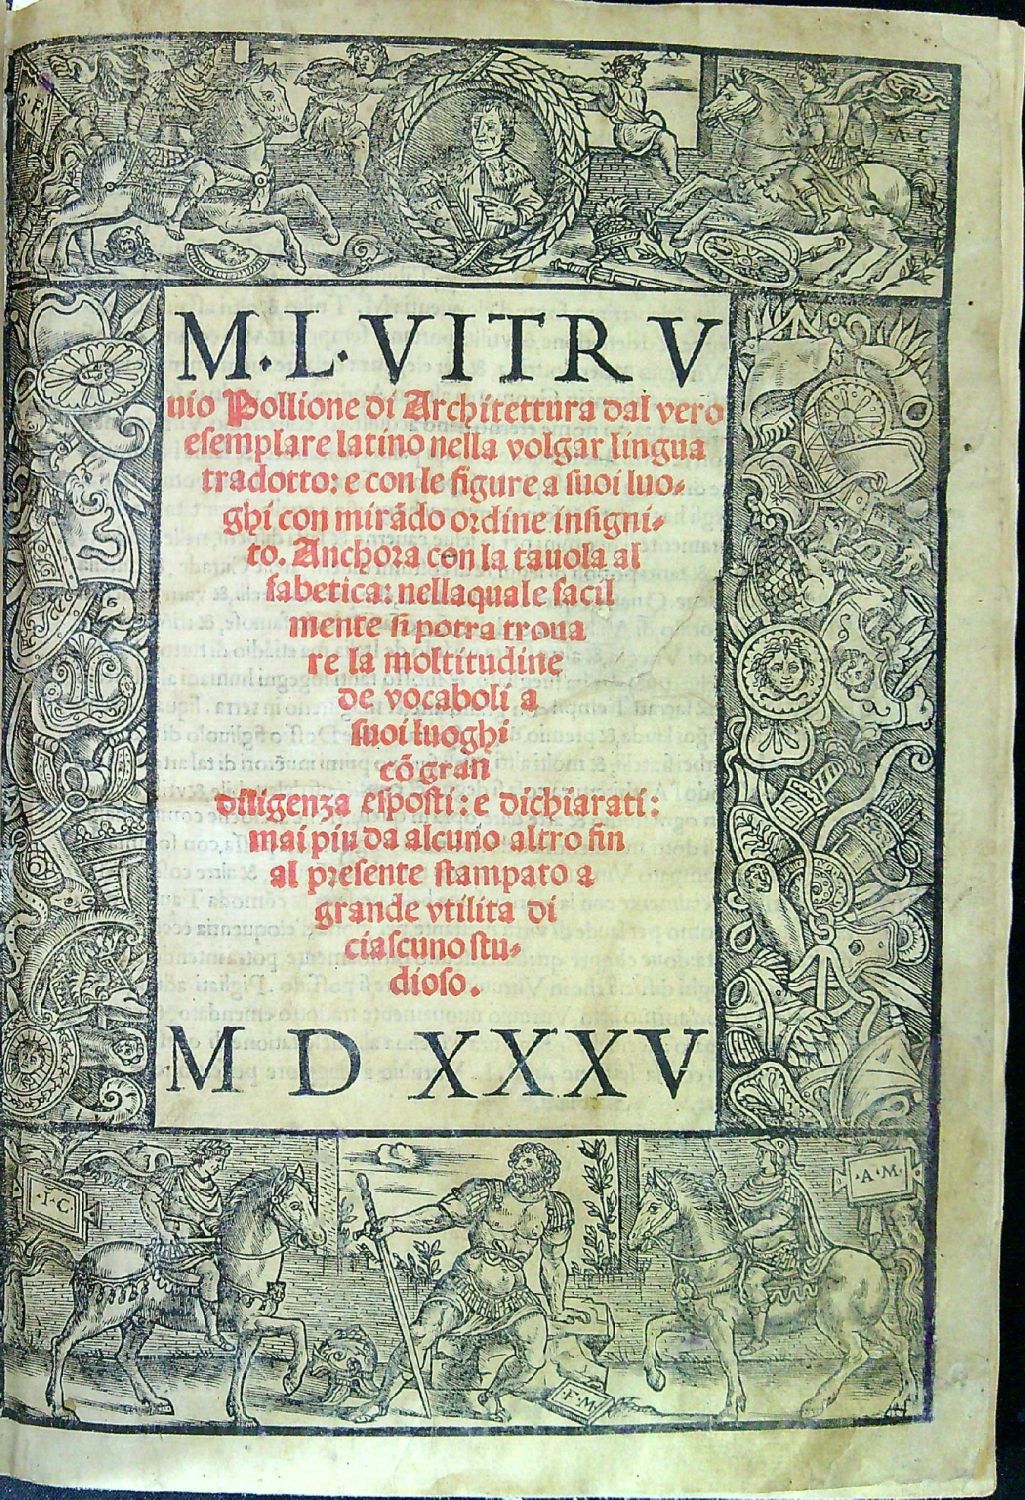 S·P·
M·L·VITRV
uio Pollione di Architettura dal vero
esemplare latino nella volgar lingua
tradotto: e con le figure a suoi luo-
ghi con mirãdo ordine insigni-
to. Anchora con la tauola al
fabetica: nella quale facil
mente si potra troua
re la moltitudine
de vocaboli a
suoi luoghi
cõ gran
diligenza esposti: e dichiarati:
mai piu da alcuno altro fin
al presente stampato a
grande vtilita di
ciascuno stu-
dioso.
M D XXXV
·I·C·
·A·M·
·F·M·